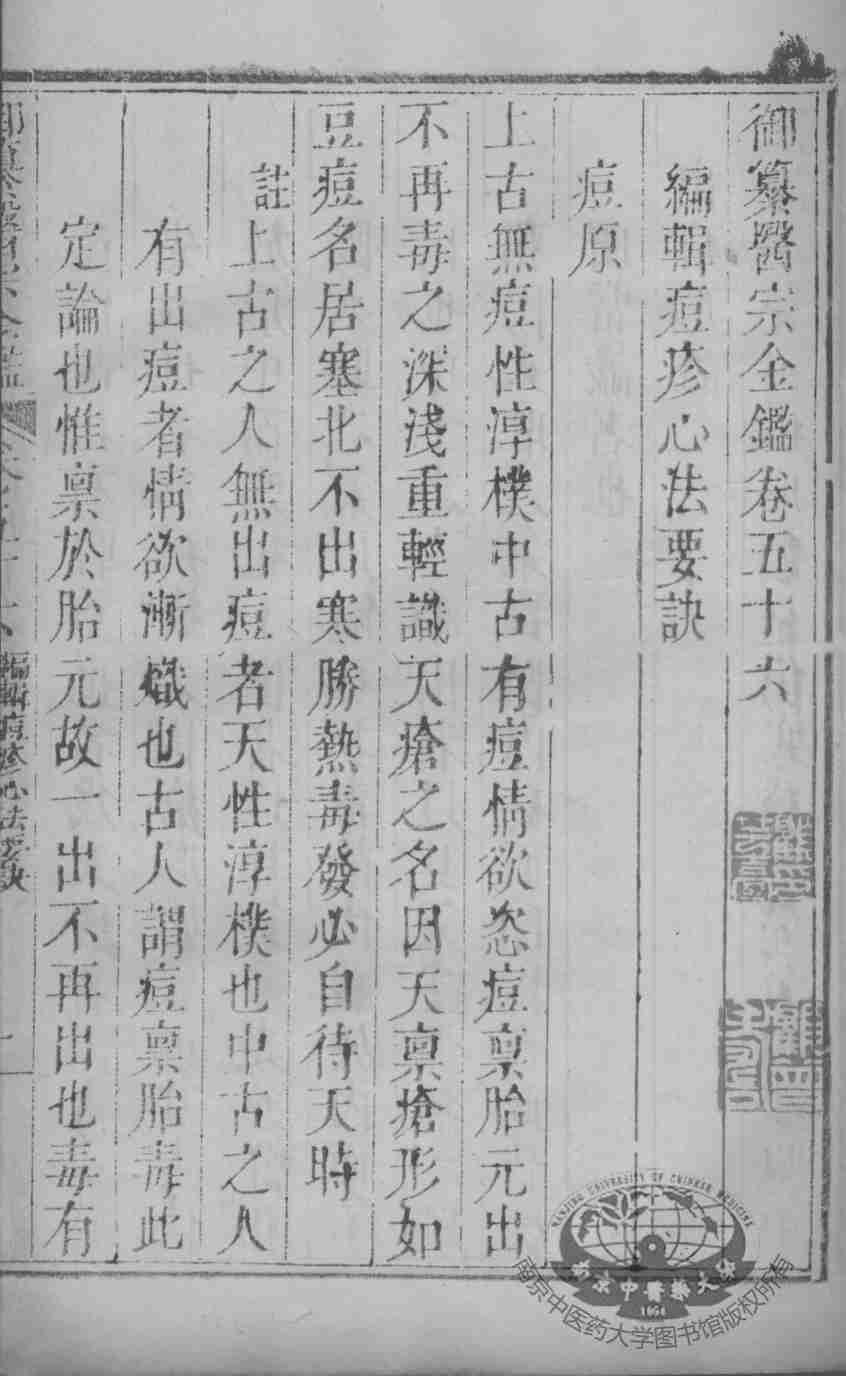 御纂醫宗金鑑卷五十六
編輯痘疹心法要訣
痘原
上古無痘性淳樸中古有痘情欲恣痘禀胎元出
不再毒之深淺重輕識天瘡之名因天禀瘡形如
豆痘名居塞北不出寒勝熱毒發必自待天時
註上古之人無出痘者天性淳樸也中古之人
有出痘者情欲漸熾也古人謂痘禀胎毒此
定論也惟禀於胎元故一出不再出也毒有
編輯痘疹心法要訣
NANJING UNIVERSITY OF CHINESE MEDICINE
南京中醫藥大學
1954
南京中医药大学图书馆版权所有